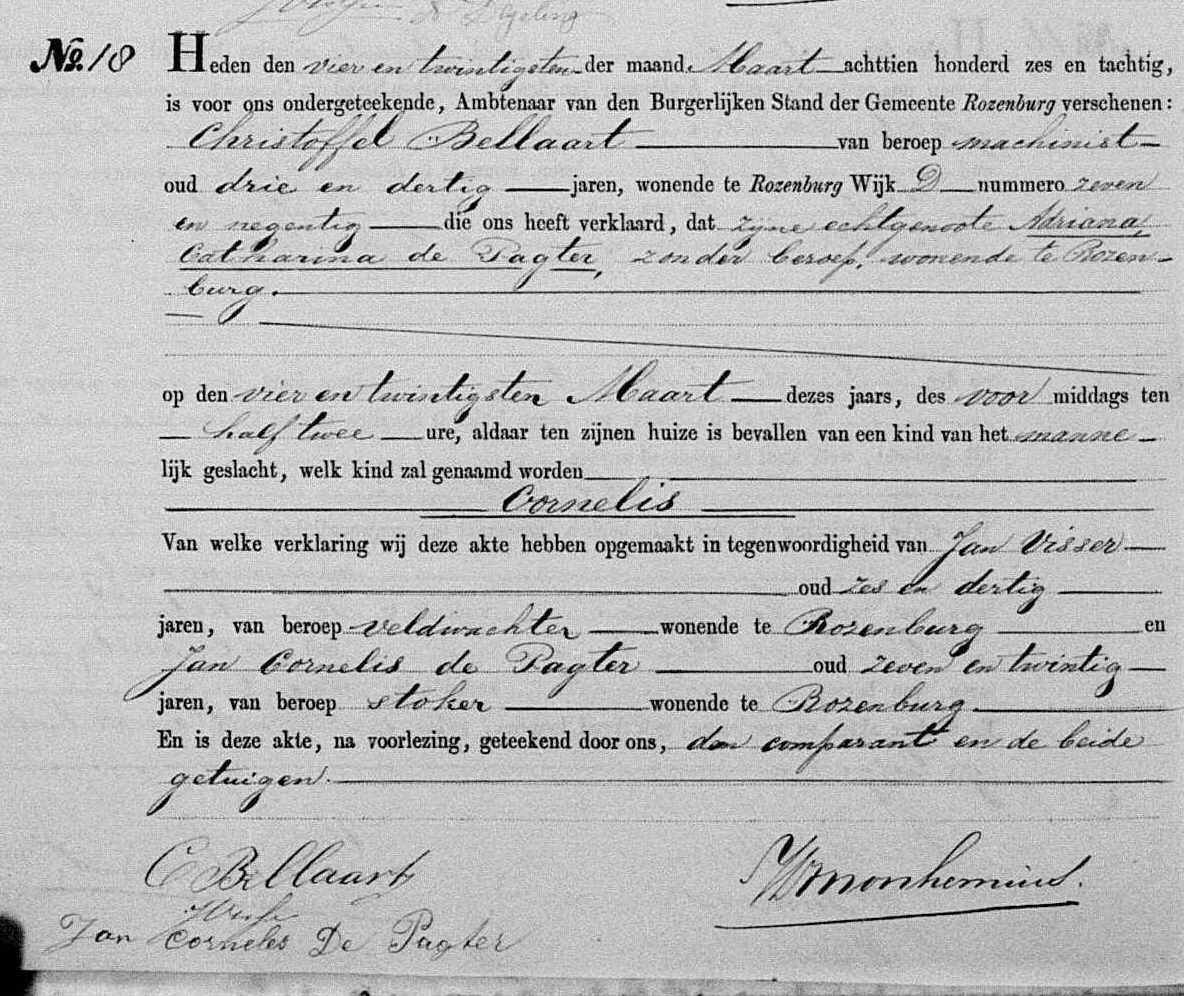 No. 18 Heden den vier en twintigsten der maand Maart achttien honderd zes en tachtig,
is voor ons ondergeteekende, Ambtenaar van den Burgerlijken Stand der Gemeente Rozenburg verschenen:
Christoffel Bellaart van beroep machinist
oud drie en dertig jaren, wonende te Rozenburg Wijk D nummero zeven
en negentig die ons heeft verklaard, dat zijne echtgenoote Adriana
Catharina de Pagter, zonder beroep, wonende te Rozen-
burg.
op den vier en twintigsten Maart dezes jaars, des voor middags ten
half twee ure, aldaar ten zijnen huize is bevallen van een kind van het manne-
lijk geslacht, welk kind zal genaamd worden
Cornelis
Van welke verklaring wij deze akte hebben opgemaakt in tegenwoordigheid van Jan Visser
oud zes en dertig
jaren, van beroep veldwachter wonende te Rozenburg en
Jan Cornelis de Pagter oud zeven en twintig
jaren, van beroep stoker wonende te Rozenburg
En is deze akte, na voorlezing, geteekend door ons, den comparant en de beide
getuigen.
C Bellaart
Monhemius.
Jan Corneles De Pagter